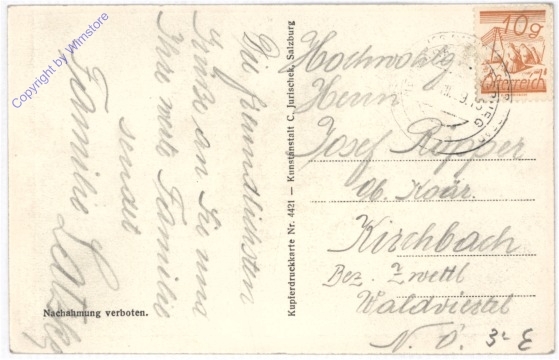 Die freundlichsten
Grüße an Sie und
Ihre werte Familie
sendet
Familie
Nachahmung verboten.
Kupferdruckkarte Nr. 4421 — Kunstanstalt C. Jurischek, Salzburg
10g
Österreich
Hochwohlg.
Herrn
Josef Rupper
Ob. Koär.
Kirchbach
Bez. Zwettl
Waldviertel
N. Ö.
3² E
Copyright by Wimstore